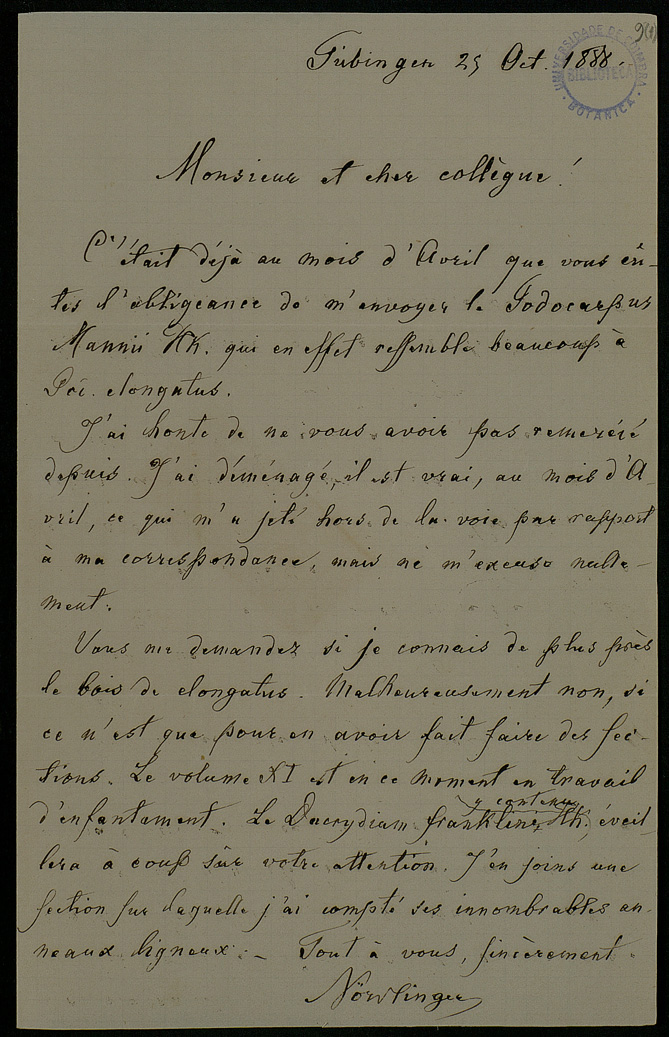 9(1)
UNIVERSIDADE DE COIMBRA
BIBLIOTECA
BOTANICA
Tübingen 25 Oct. 1888.
Monsieur et cher collègue!
C'était déjà au mois d'Avril que vous eû-
tes l'obligeance de m'envoyer le Podocarpus
Mannii Hk. qui en effet ressemble beaucoup à
Poc. elongatus.
J'ai honte de ne vous avoir pas remercié
depuis. J'ai déménagé, il est vrai, au mois d'A-
vril, ce qui m'a jeté hors de la voie par rapport
à ma correspondance, mais ne m'excuse nulle-
ment.
Vous me demandez si je connais de plus près
le bois de elongatus. Malheureusement non, si
ce n'est que pour en avoir fait faire des sec-
tions. Le volume XI est en ce moment en travail
y contenu
d'enfantement. Le Dacrydium franklini Hk. éveil-
lera à coup sûr votre attention. J'en joins une
section sur laquelle j'ai compté ses innombrables an-
neaux ligneux. – Tout à vous, sincèrement.
Nördlinger